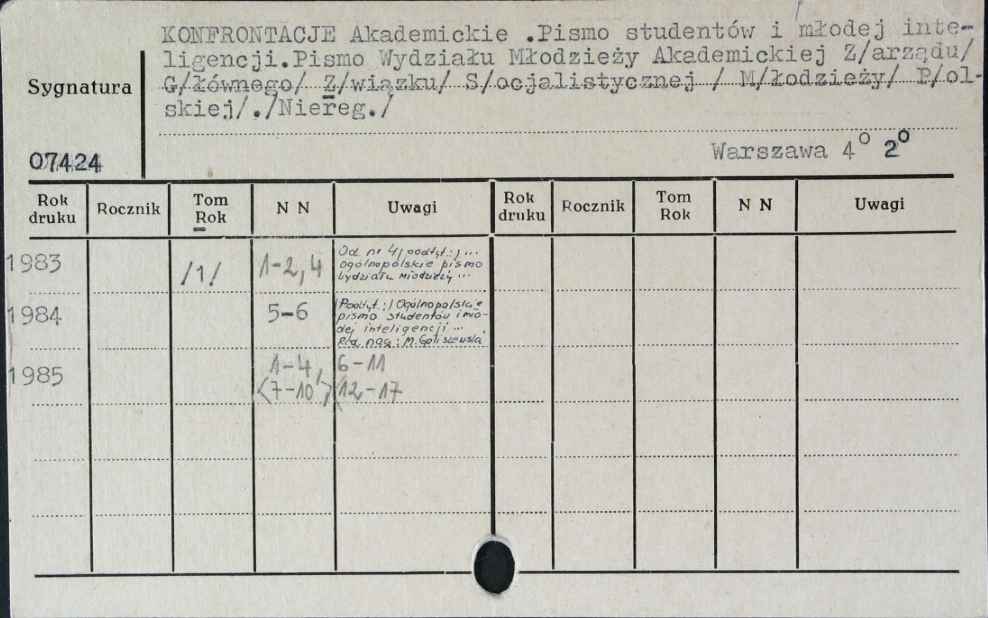 KONFRONTACJE Akademickie .Pismo studentów i młodej inte-
ligencji.Pismo Wydziału Młodzieży Akademickiej Z/arządu/
Sygnatura G/łównego/ Z/wiązku/ S/ocjalistycznej / M/łodzieży/ P/ol-
skiej/./Niereg./
07424 Warszawa 4° 2°
Rok druku Rocznik Tom Rok N N Uwagi Rok druku Rocznik Tom Rok N N Uwagi
1983 /1/ 1-2, 4 Od nr 4 podtyt.: ...
ogólnopolskie pismo
wydziału młodzieży ...
1984 5-6 Podtyt.: Ogólnopolskie
pismo studentów i mło-
dej inteligencji ...
Red. nacz: M. Goliszewska
1985 1-4, 6-11
(7-10) (12-17